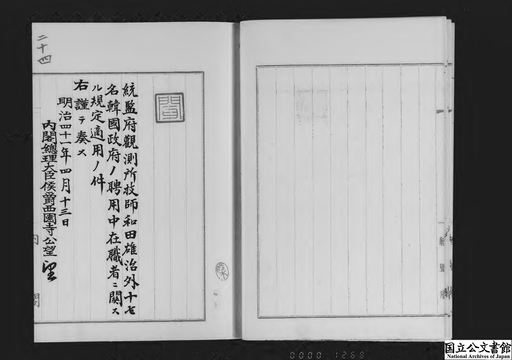 二十四
統監府觀測所技師和田雄治外十七
名韓國政府ノ聘用中在職者ニ關ス
ル規定適用ノ件
右謹テ奏ス
明治四十一年四月十三日
內閣總理大臣侯爵西園寺公望
0000 1268
国立公文書館
National Archives of Japan